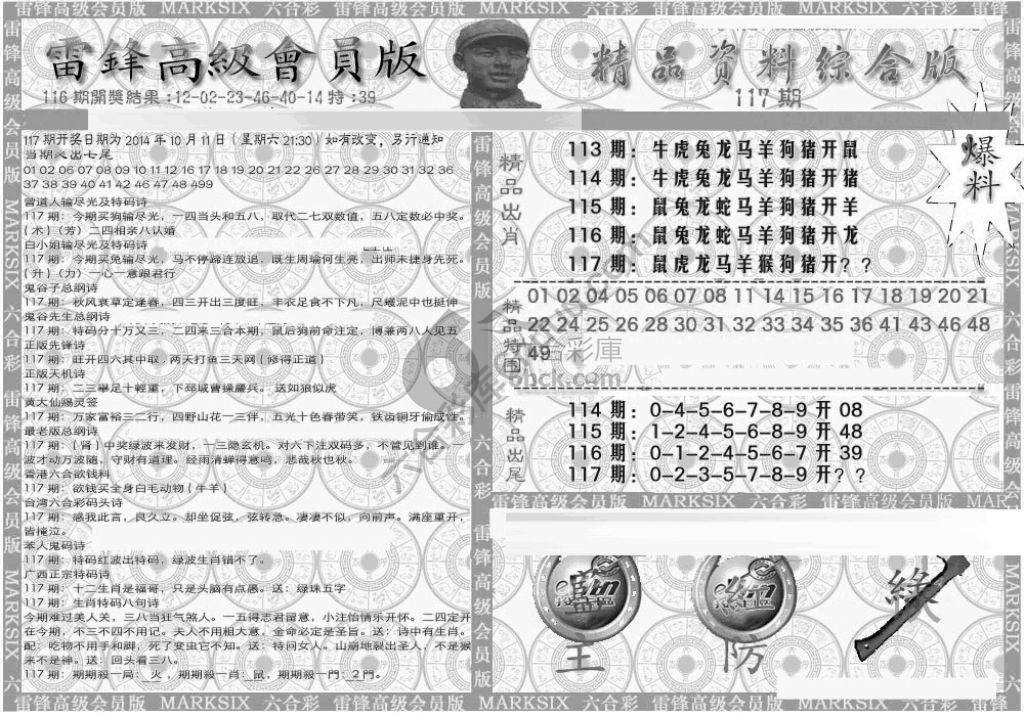 雷锋高级会员版 MARKSIX 六合彩 雷锋高级会员版 MARKSIX 六合彩 雷锋高级会员版 MARKSIX 六合彩 雷锋
雷鋒高級會員版
精品资料综合版
116期開獎結果:12-02-23-46-40-14特:39
117期
爆料
117期开奖日期为2014年10月11日（星期六21:30）如有改变，另行通知
01 02 06 07 08 09 10 11 12 16 17 18 19 20 21 22 26 27 28 29 30 31 32 36
37 38 39 40 41 42 46 47 48 499
曾道人输尽光及特码诗
117期：今期买狗输尽光，一四当头和五八，取代二七双数值，五八定数必中奖。
(术)（芳）二四相亲八认婚
白小姐输尽光及特码诗
117期：今期买兔输尽光，马不停蹄连放追，既生周瑜何生亮，出师未捷身先死。
(升)（力）一心一意跟君行
鬼谷子总纲诗
117期：秋风衰草定逢春，四三开出三度旺，丰衣足食不下凡，尺蠖泥中也挺伸
鬼谷先生总纲诗
117期：特码分十万又三，二四来三合本期，鼠后狗前命注定，博兼两八人见五
正版先锋诗
117期：旺开四六其中取，两天打鱼三天网（修得正道）
正版天机诗
117期：二三舉足十輕重，下邳城曹操鏖兵。送如狼似虎
黄大仙赐灵签
117期：万家富裕三二行，四野山花一三伴，五光十色春带笑，铁齿铜牙偷成性。
最老版总纲诗
117期：（肾）中奖绿波来发财，一三隐玄机。对六下注双码多，不管见到谁。一
波才动万波随，守财有道理。经雨清蝉得意鸣，悲哉秋也秋。
香港六合欲钱料
117期：欲钱买全身白毛动物（牛羊）
台湾六合彩码头诗
117期：感我此言，良久立。却坐促弦，弦转急。凄凄不似，向前声。满座重开，
皆掩泣。
笨人鬼码诗
117期：特码红波出特码，绿波生肖错不了。
广西正宗特码诗
117期：十二生肖是福哥，只是头脑有点愚。送：绿珠五字
117期：生肖特码八句诗
今期难过美人关，三八当狂气煞人。一五得志君留意，小注怡情乐开怀。二四定开
在今期，不三不四不用记。夫人不用粗大意，金命必定是圣旨。送：诗中有生肖。
配：吃物不用手和脚，死了变虫它不知。送：特问女人。山崩地裂出圣人，不是猴
来不是神。送：回头看三八。
117期：期期殺一局：火，期期殺一肖：鼠，期期殺一門：2門。
精品出肖
113期：牛虎兔龙马羊狗猪开鼠
114期：牛虎兔龙马羊狗猪开猪
115期：鼠兔龙蛇马羊狗猪开羊
116期：鼠兔龙蛇马羊狗猪开龙
117期：鼠虎龙马羊猴狗猪开？？
精品特围
01 02 04 05 06 07 08 11 14 15 16 17 18 19 20 21
22 24 25 26 28 30 31 32 33 34 35 36 41 43 46 48
49
彩庫
6hck.com
精品出尾
114期：0-4-5-6-7-8-9开08
115期：1-2-4-5-6-8-9开48
116期：0-1-2-4-5-6-7开39
117期：0-2-3-5-7-8-9开？？
雷锋高级会员版 MARKSIX 六合彩 雷锋高级会员版
主
防
绿
雷锋高级会员版 MARKSIX 六合彩 雷锋高级会员版 MARKSIX 六合彩 雷锋高级会员版 MARKSIX 六合彩 雷锋